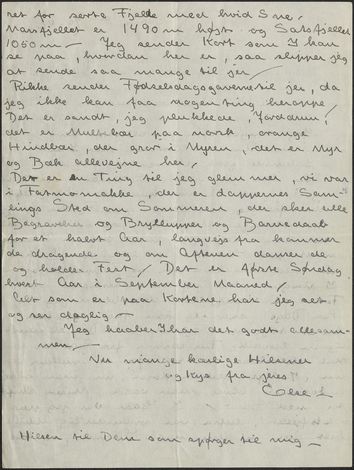 ret for sorte Fjelde med hvid Sne,
Marsfjellet er 1490 m højt og Satsfjellet
1050 m — Jeg sender Kort som I kan
se paa, hvordan her er, saa slipper jeg
at sende saa mange til jer /
Ikke sender Fødselsdagsgaverne til jer, da
jeg ikke kan faa nogen ting heroppe /
Det er sandt, jeg plukkede,
det er Multebær paa norsk, orange
Hindbær, der gror i Myren, det er Myr
og Bæk allevejne her,
Der er en Ting til jeg glemmer, vi var
i Fatmomakke, der er Lappernes Sam-
lings Sted om Sommeren, der sker alle
Begravelser og Bryllupper og Barnedaab
for et halvt Aar, langvejs fra kommer
de dragende og om Aftenen danser de
og holder Fest / Det er første Søndag
hvert Aar i September Maaned /
som er paa Kortene har jeg set
og ser daglig —
Jeg haaber I har det godt allesam-
men —
Nu mange kærlige Hilsener
og Kys fra jeres
Else
Hilsen til Dem som spørger til mig —